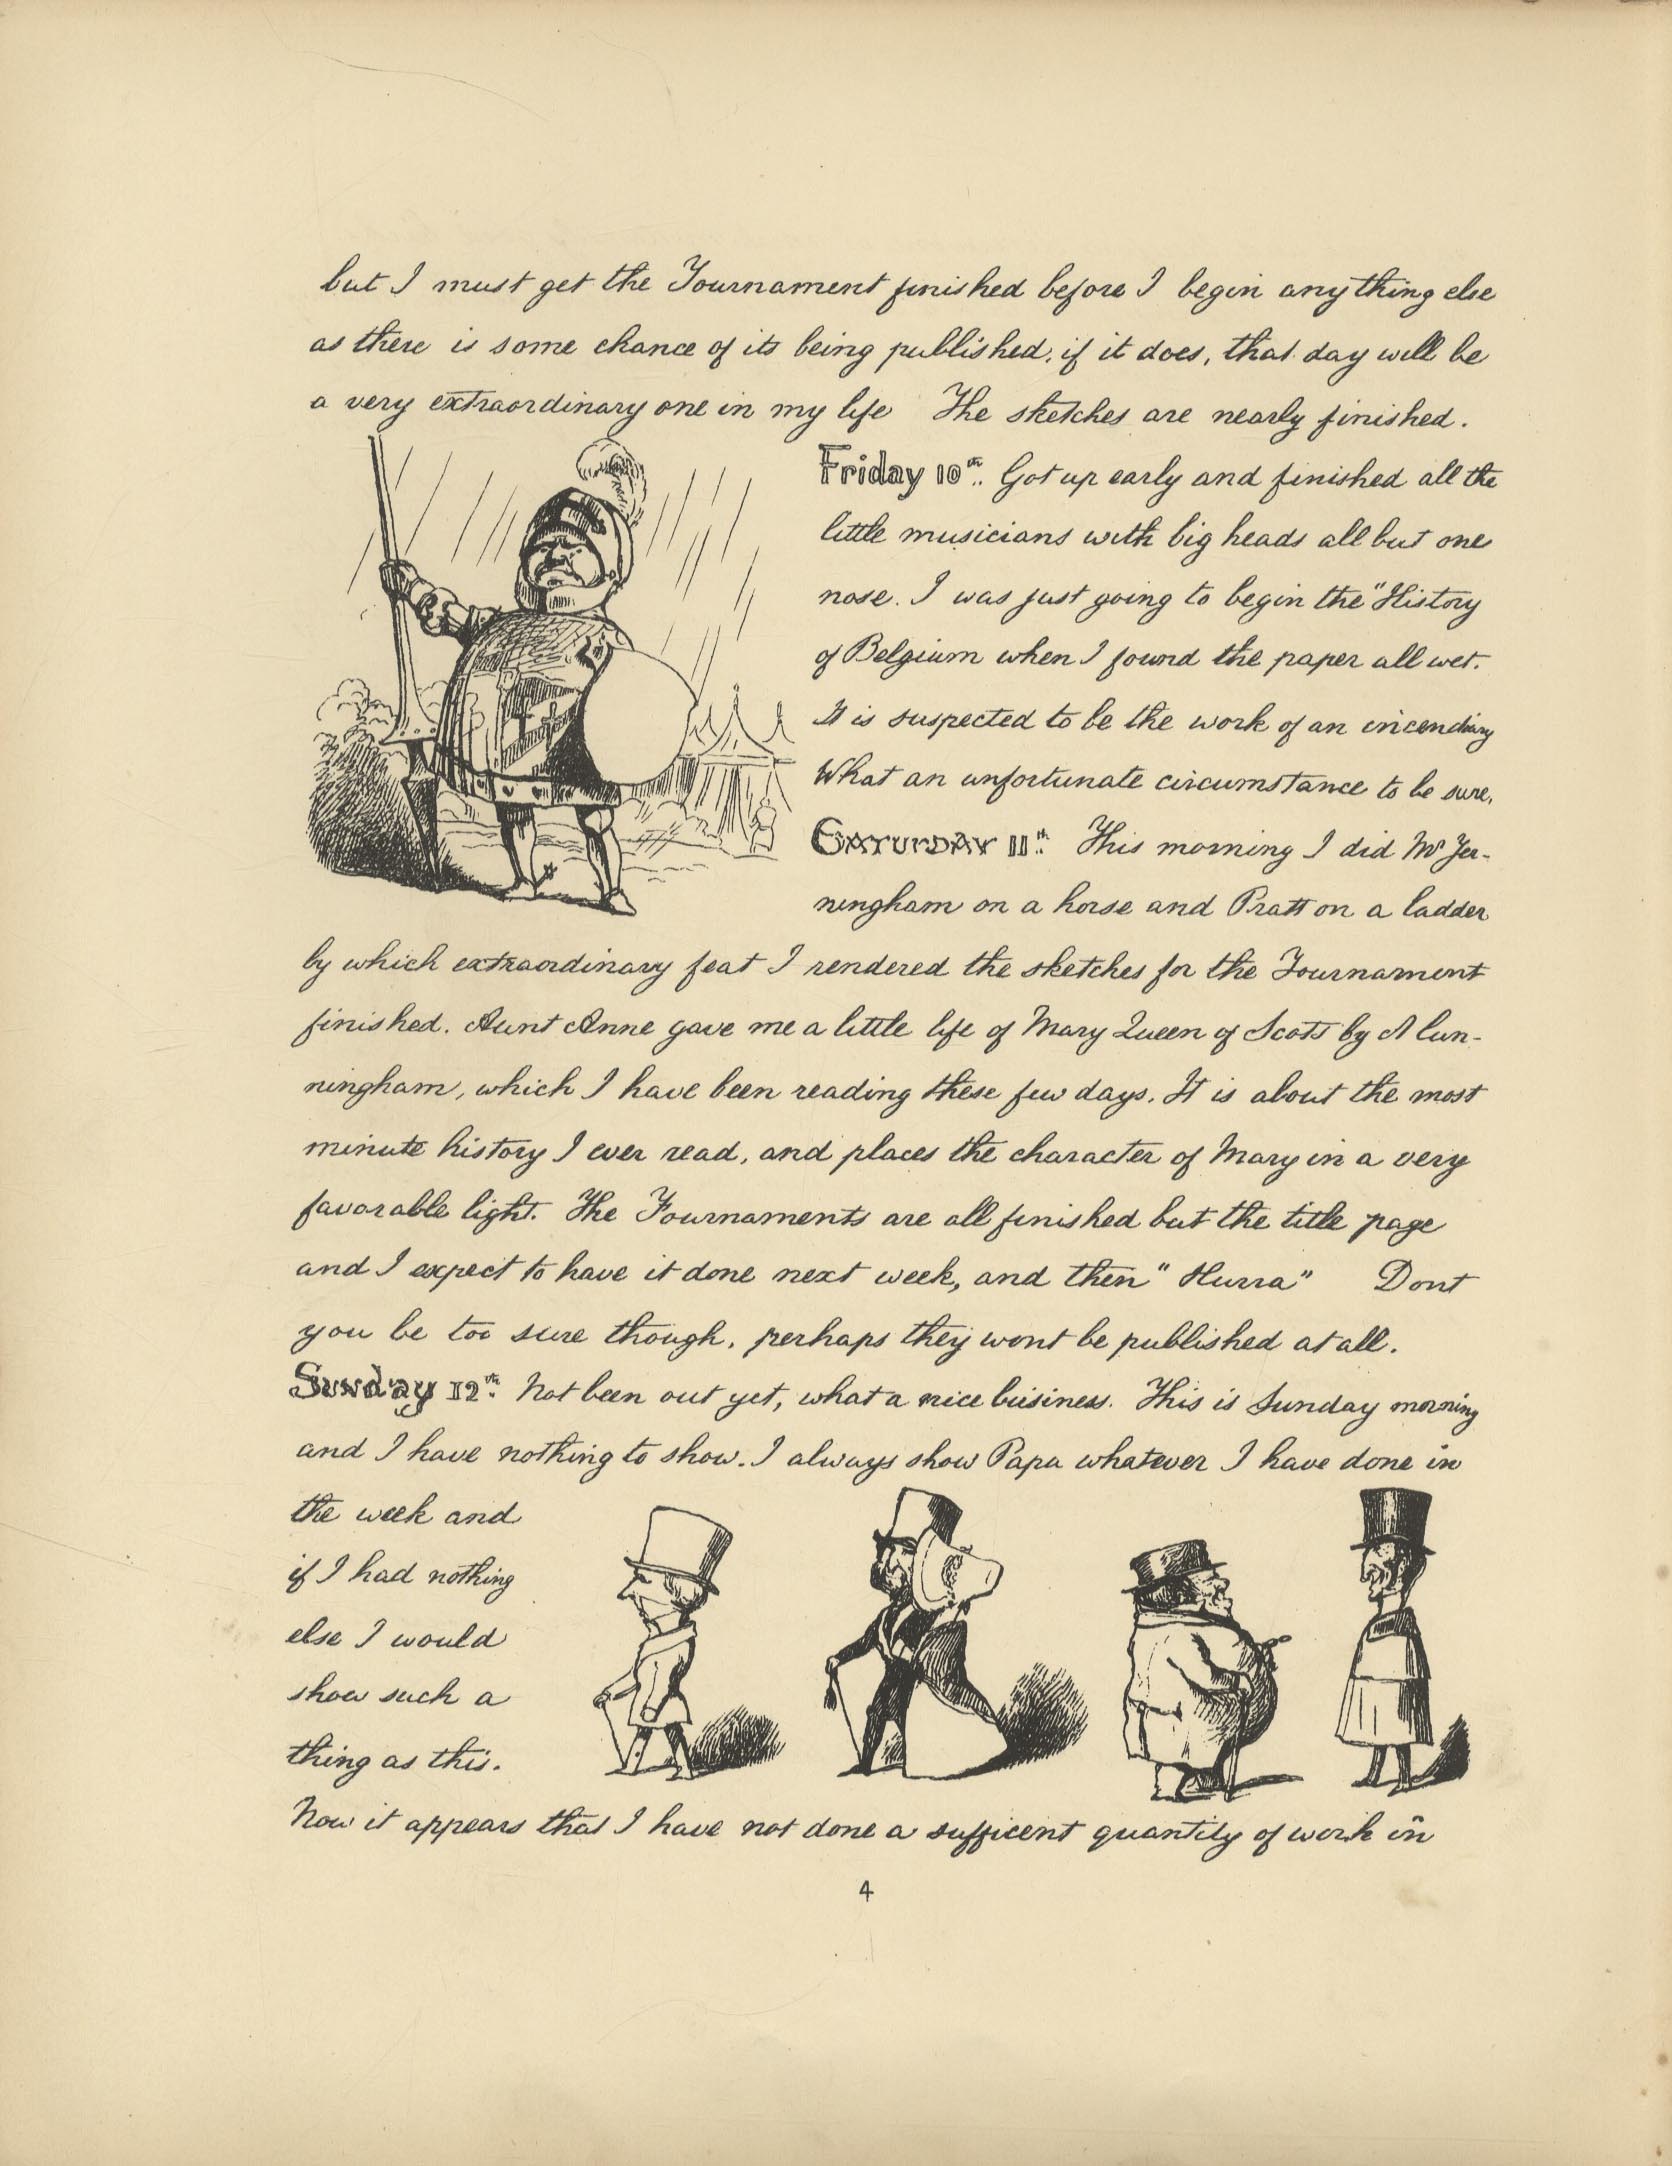 but I must get the Tournament finished before I begin anything else
as there is some chance of its being published, if it does, that day will be
a very extraordinary one in my life The sketches are nearly finished.
Friday 10th. Got up early and finished all the
little musicians with big heads all but one
nose. I was just going to begin the "History
of Belgium when I found the paper all wet.
It is suspected to be the work of an incendiary
What an unfortunate circumstance to be sure.
SATURDAY 11th. This morning I did Mr Jer-
ningham on a horse and Pratt on a ladder
by which extraordinary feat I rendered the sketches for the Tournament
finished. Aunt Anne gave me a little life of Mary Queen of Scots by A Cun-
ningham, which I have been reading these few days. It is about the most
minute history I ever read, and places the character of Mary in a very
favorable light. The Tournaments are all finished but the title page
and I expect to have it done next week, and then "Hurra" Dont
you be too sure though, perhaps they wont be published at all.
Sunday 12th. Not been out yet, what a nice business. This is Sunday morning
and I have nothing to show. I always show Papa whatever I have done in
the week and
if I had nothing
else I would
show such a
thing as this.
Now it appears that I have not done a sufficent quantity of work in
4